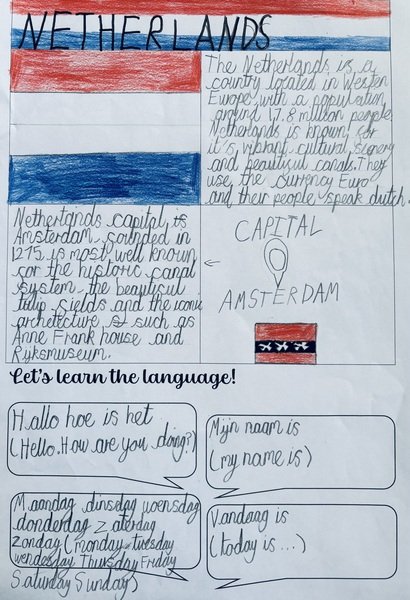 NETHERLANDS
The Netherlands is a
country located in Westen
Europe, with a population
around 17.8 million people.
Netherlands is known for
it's vibrant cultural scenery
and beautiful canals. They
use the currency Euro
and their people speak dutch.
Netherlands capital is
Amsterdam, founded in
1275 is most well known
for the historic canal
system, the beautiful
tulip fields and the iconic
archetecture such as
Anne Frank house and
Ryksmuseum.
CAPITAL
AMSTERDAM
Let's learn the language!
Hallo hoe is het
(Hello. How are you doing?)
Mijn naam is
(my name is)
Maandag dinsdag woensdag
donderdag zaterdag
zonday (monday tuesday
wendesday Thursday Friday
Saturday Sunday)
Vandang is
(today is...)